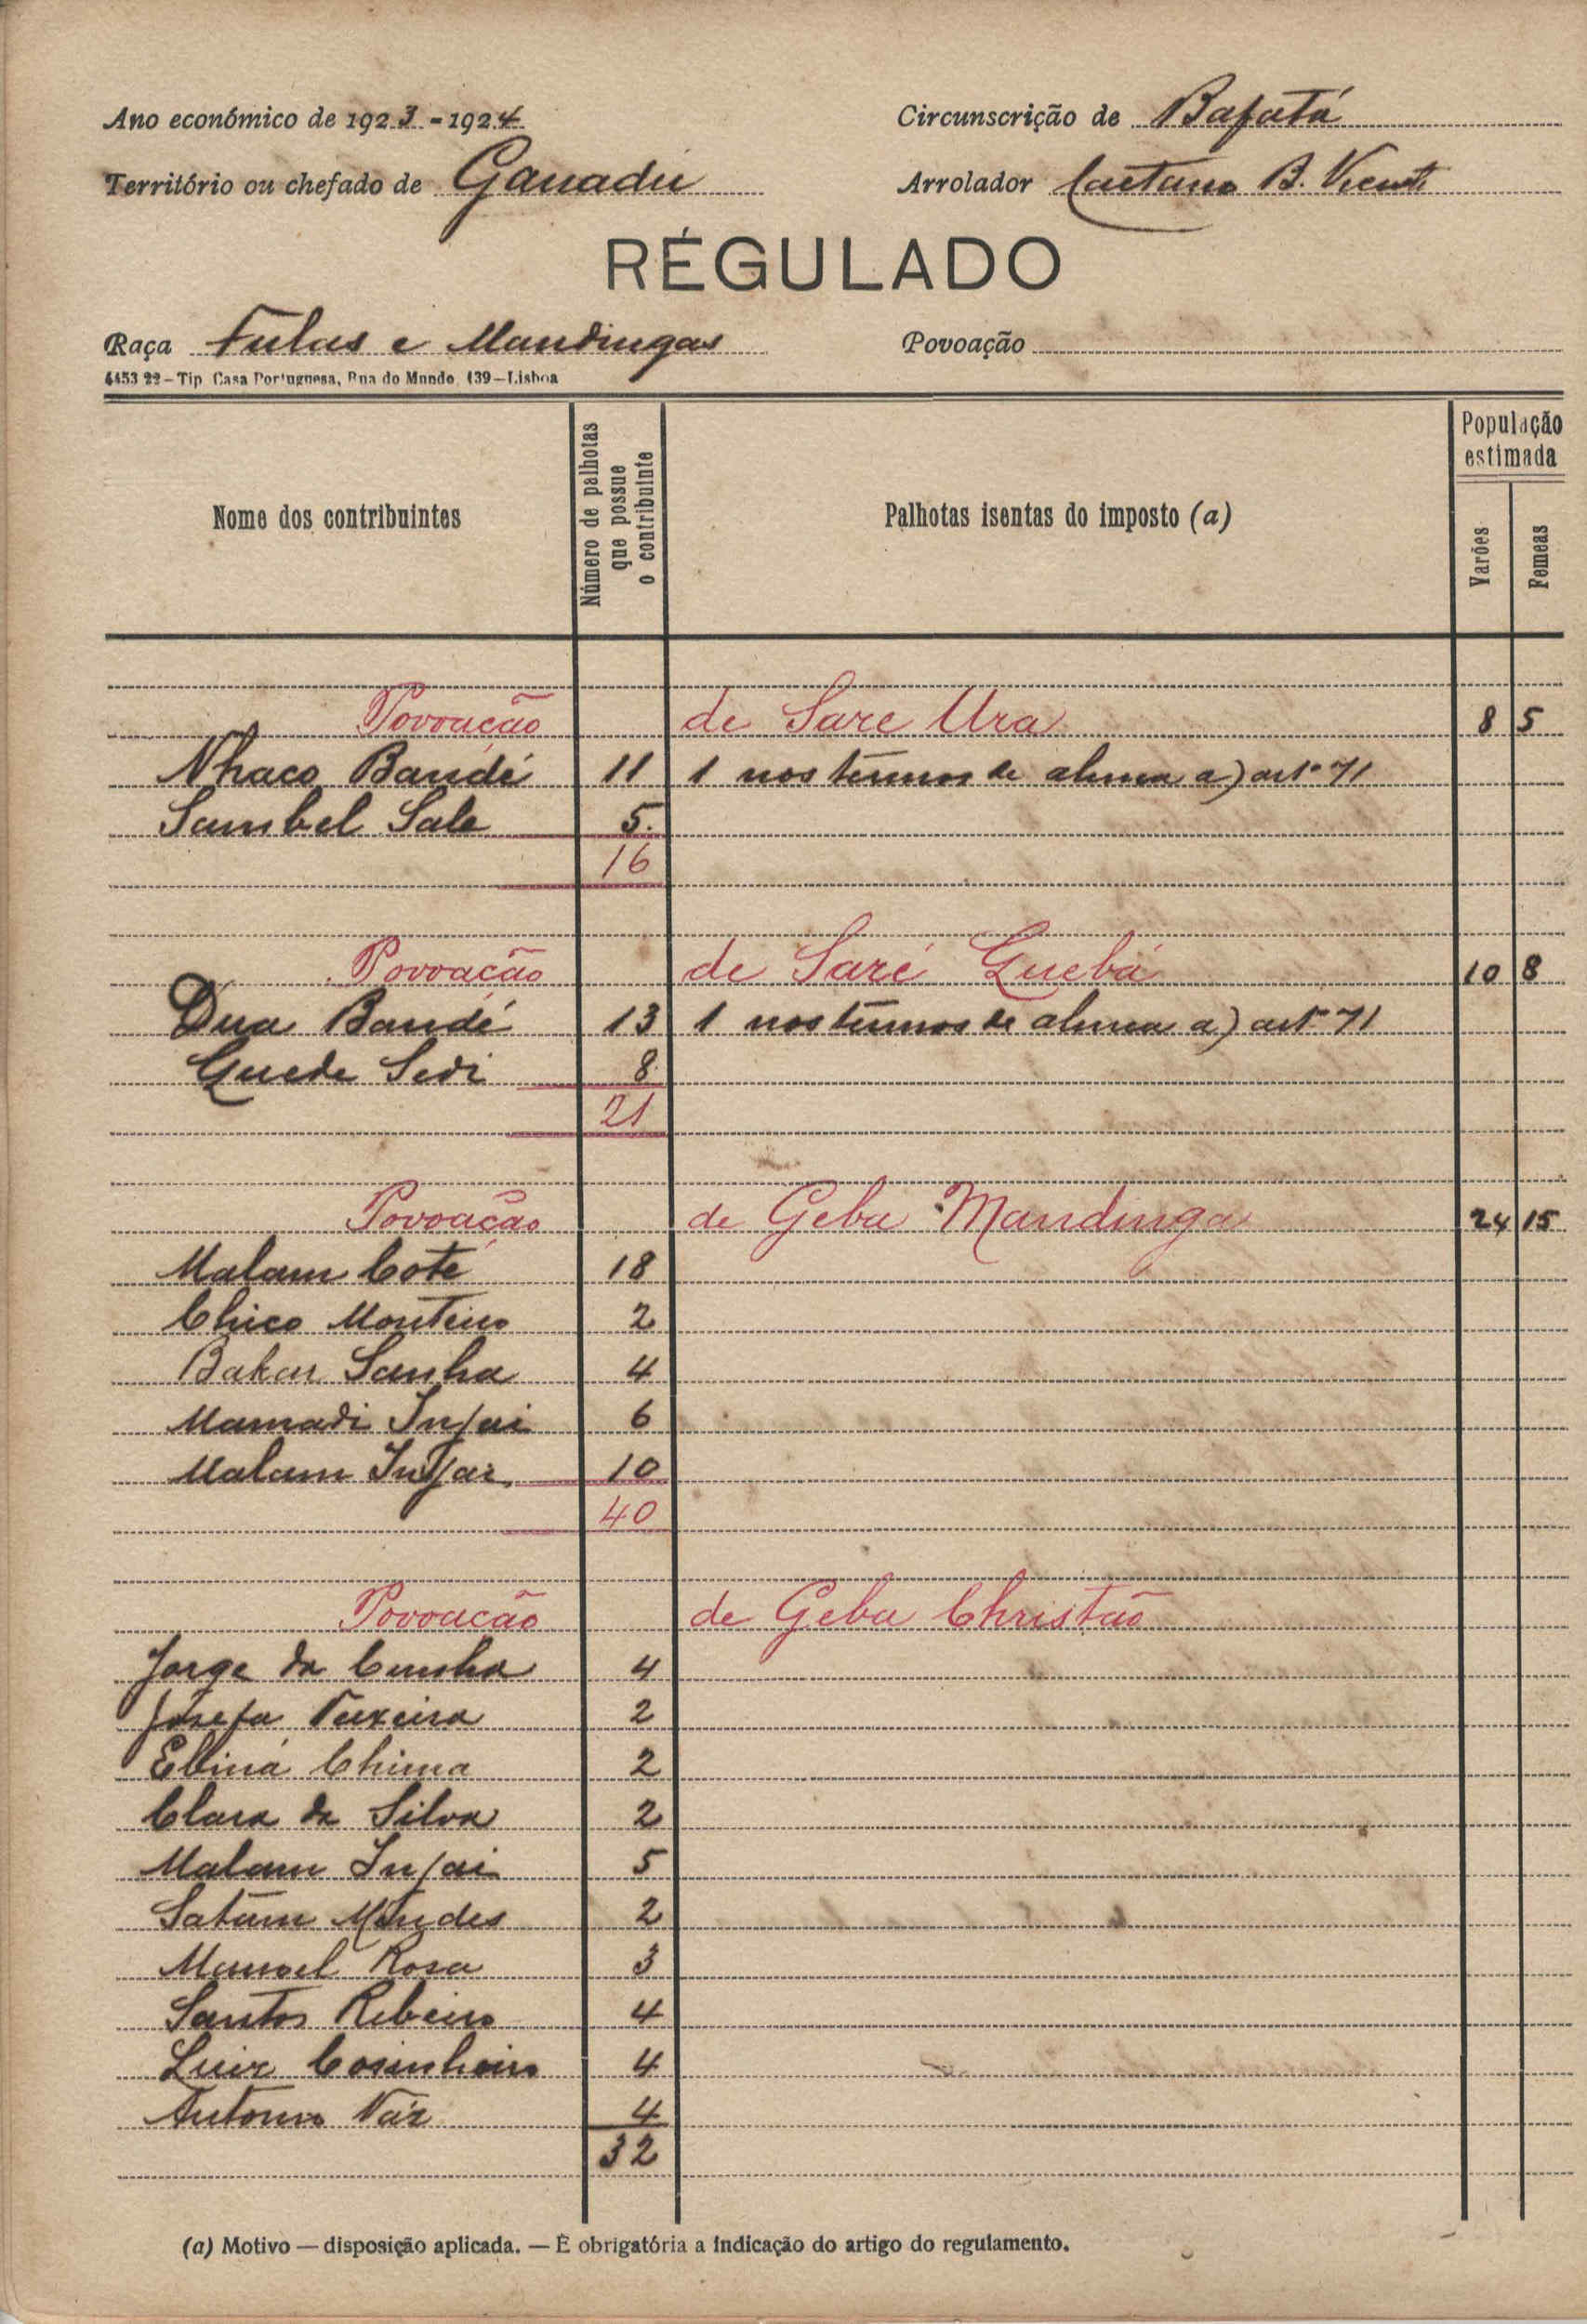 Ano económico de 1923-1924
Circunscrição de Bafatá
Território ou chefado de Ganadú
Arrolador Caetano B. Vicente
RÉGULADO
Raça Fulas e Mandingas
Povoação
4453 22-Tip. Casa Portuguesa, Rua do Mundo, 139-Lisboa
Nome dos contribuintes
Número de palhotas que possue o contribuinte
Palhotas isentas do imposto (a)
População estimada
Varões
Femeas
Povoação de Sare Ura 8 5
Nhaco Bandé 11 1 nos termos de alinea a) artº 71
Sambel Sale 5.
16
Povoação de Saré Guebá 10 8
Dua Bandé 13 1 nos termos de alinea a) artº 71
Guede Sedi 8
21
Povoação de Geba Mandinga 24 15
Malam Coté 18
Chico Monteiro 2
Bakar Sanha 4
Mamadi Injai 6
Malam Injai 10
40
Povoação de Geba Christão
Jorge da Cunha 4
Josefa Teixeira 2
Chima 2
Clara da Silva 2
Malam Injai 5
Satum Mendes 2
Manoel Rosa 3
Santos Ribeiro 4
Luiz Cosinheiro 4
Antonio Váz 4
32
(a) Motivo — disposição aplicada. — É obrigatória a indicação do artigo do regulamento.